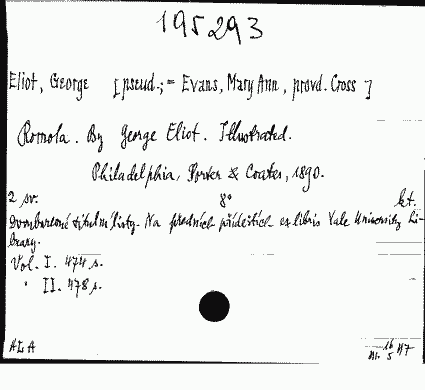 195293
Eliot, George [pseud.; = Evans, Mary Ann, provd. Cross]
Romola. By George Eliot. Illustrated.
Philadelphia, Porter & Coates, 1890.
2 sv. 8° kt.
Dvoubarevné titulní listy. Na předních přídeštích ex libris Yale University Li-
brary.
Vol. I. 474 s.
" II. 478 s.
ALA 47